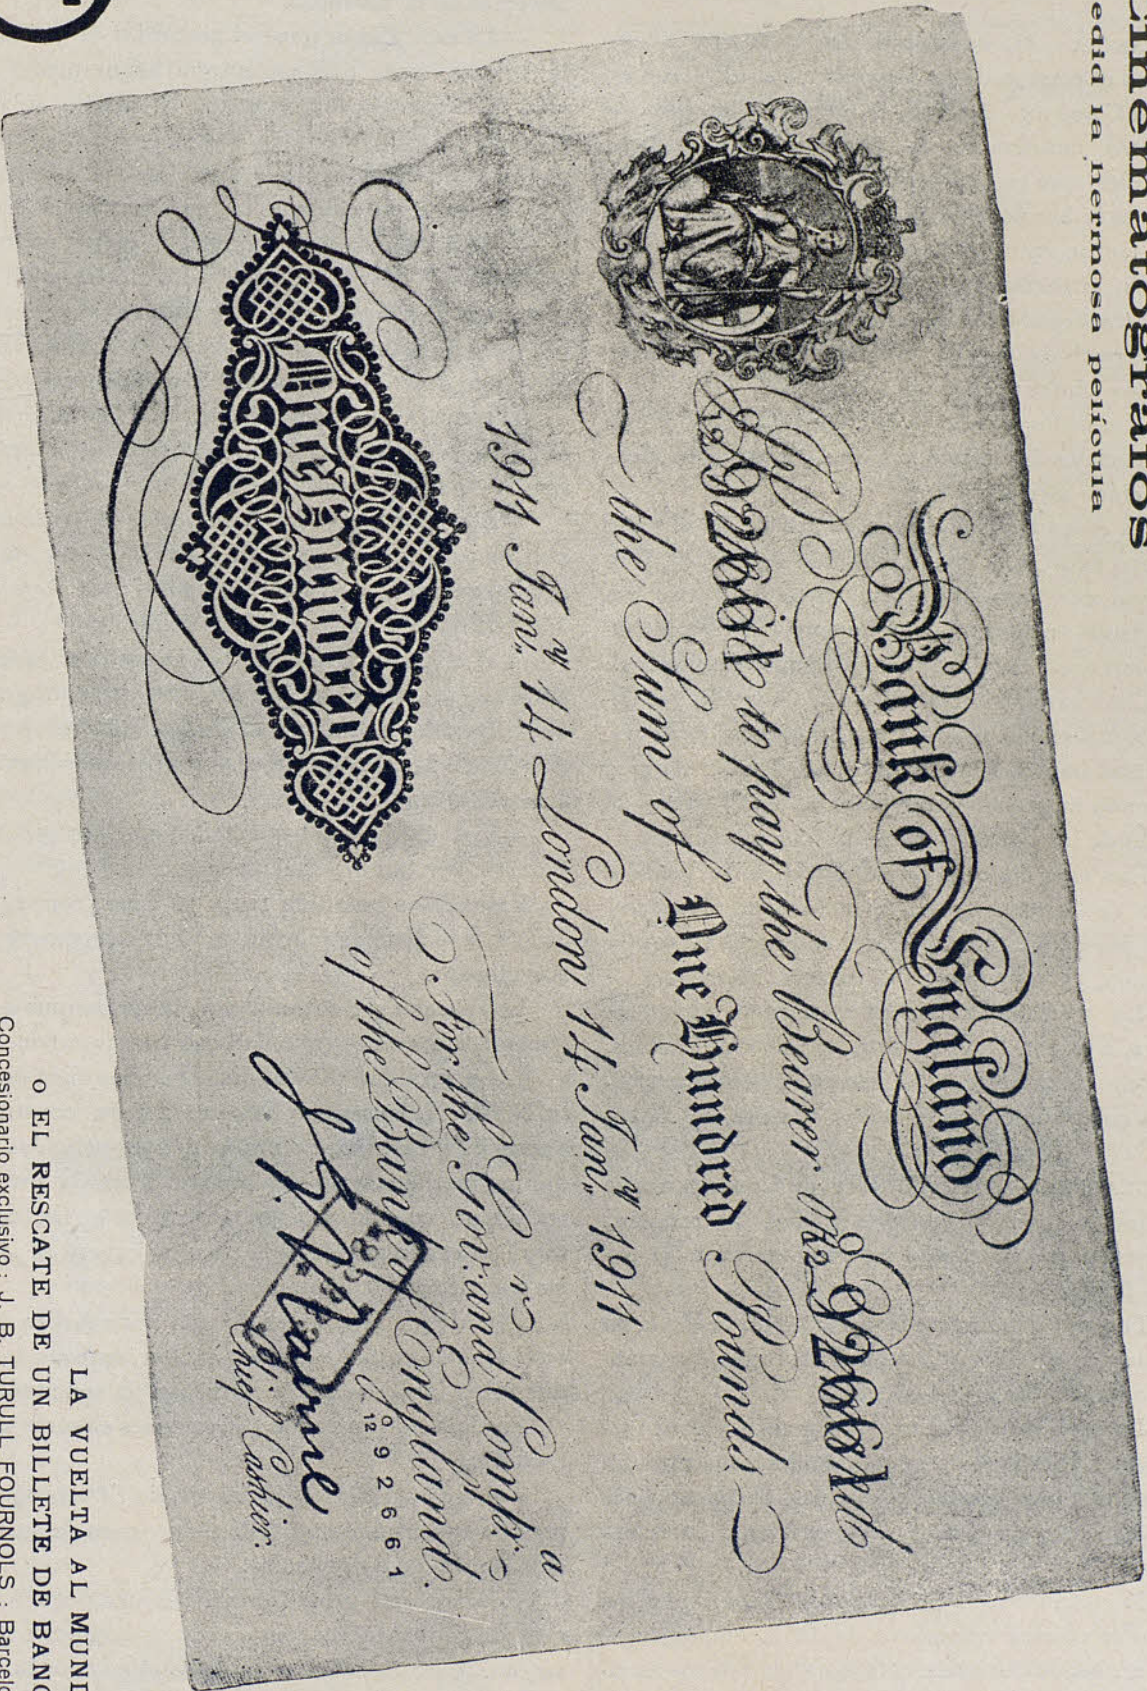 Cinematógrafos
la hermosa película
Bank of England
to pay the Bearer on
the Sum of One Hundred Pounds.
1911 Janʸ 14 London 14 Janʸ 1911
For the Govʳ and Compᵃ
of the Bank of England.
One Hundred
J. G. Nairne
Chief Cashier.
92661
LA VUELTA AL
o EL RESCATE DE UN BILLETE DE
Concesionario exclusivo: J. B. TURULL FOURNOLS :